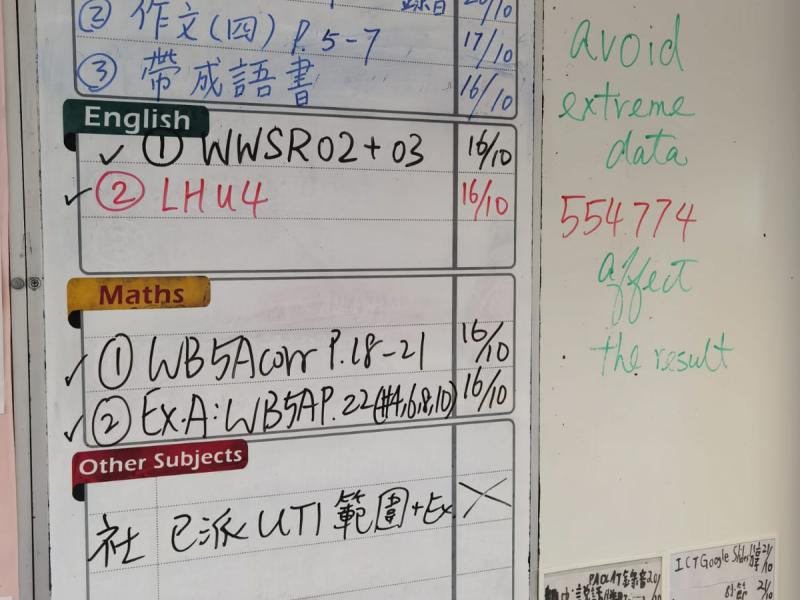 錄音 20/10
② 作文(四) P.5-7 17/10
③ 帶成語書 16/10
English
✓ ① WWSR02+03 16/10
✓ ② LHU4 16/10
Maths
✓ ① WB5A corr P.18-21 16/10
✓ ② Ex.A: WB5A P.22 (#4,6,8,10) 16/10
Other Subjects
社 已派 UT1 範圍+Ex. ×
avoid
extreme
data
554774
affect
the result
ICT Google Slides